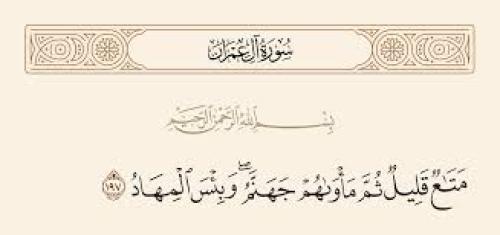 سُورَةُ آلِ عِمْرَانَ
بِسْمِ ٱللَّهِ ٱلرَّحْمَٰنِ ٱلرَّحِيمِ
مَتَٰعٌ قَلِيلٌ ثُمَّ مَأْوَىٰهُمْ جَهَنَّمُ ۖ وَبِئْسَ ٱلْمِهَادُ ١٩٧